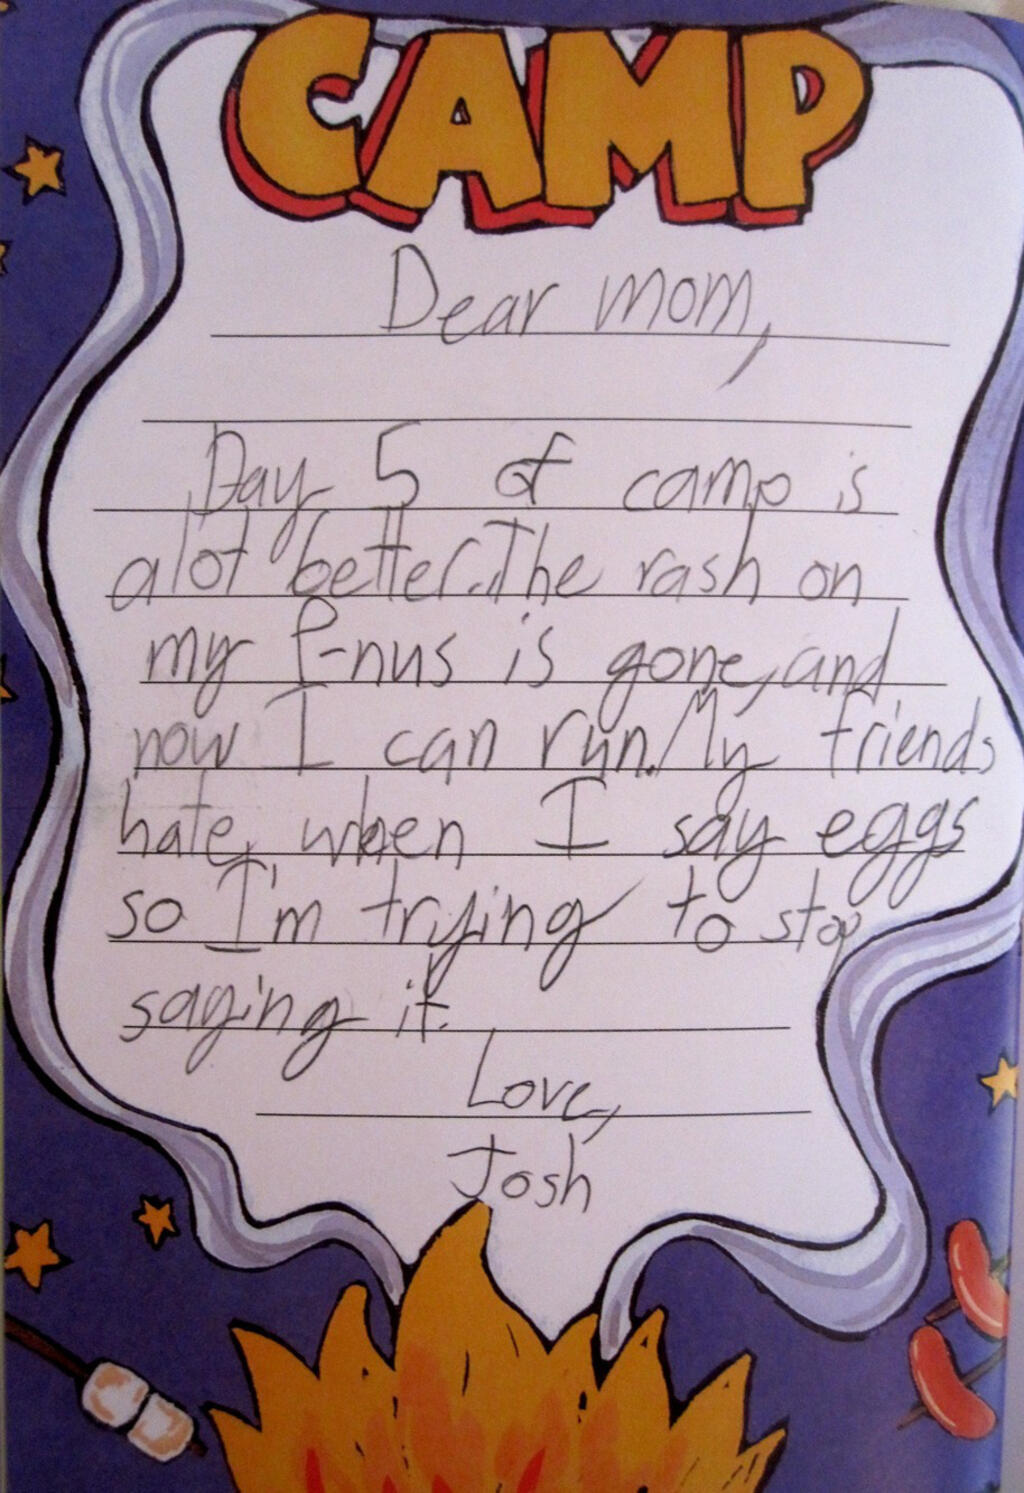 CAMP
Dear mom,
Day 5 of camp is
alot better. The rash on
my P-nus is gone, and
now I can run. My friends
hate when I say eggs
so I'm trying to stop
saying it.
Love,
Josh